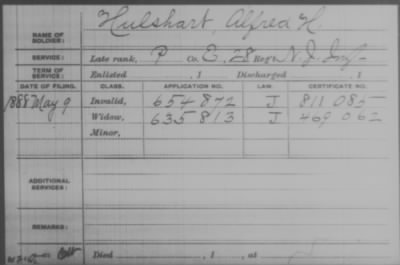 Hulshart, Alfred H.
NAME OF SOLDIER:
SERVICE: Late rank, P Co. E, 28 Reg't N.J. Inf.
TERM OF SERVICE: Enlisted , 1 Discharged , 1
DATE OF FILING. CLASS. APPLICATION NO. LAW. CERTIFICATE NO.
1888 May 9 Invalid, 654872 J 811085
Widow, 635813 J 469062
Minor,
ADDITIONAL SERVICES:
REMARKS:
Died , 1 , at